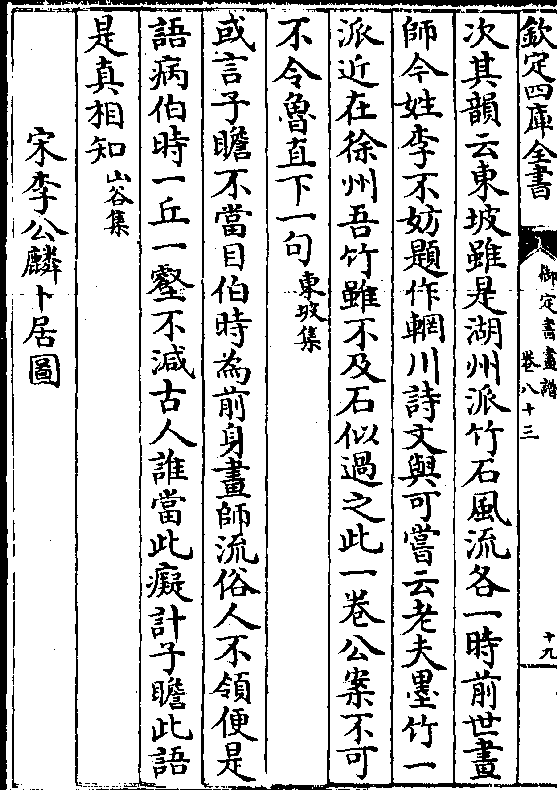 欽定四庫全書
御定書畫譜
卷八十三
十九
次其韻云東坡雖是湖州派竹石風流各一時前世畫
師今姓李不妨題作輞川詩文與可嘗云老夫墨竹一
派近在徐州吾竹雖不及石似過之此一卷公案不可
不令魯直下一句東坡集
或言子瞻不當目伯時為前身畫師流俗人不領便是
語病伯時一丘一壑不減古人誰當此癡計子瞻此語
是真相知山谷集
宋李公麟卜居圖